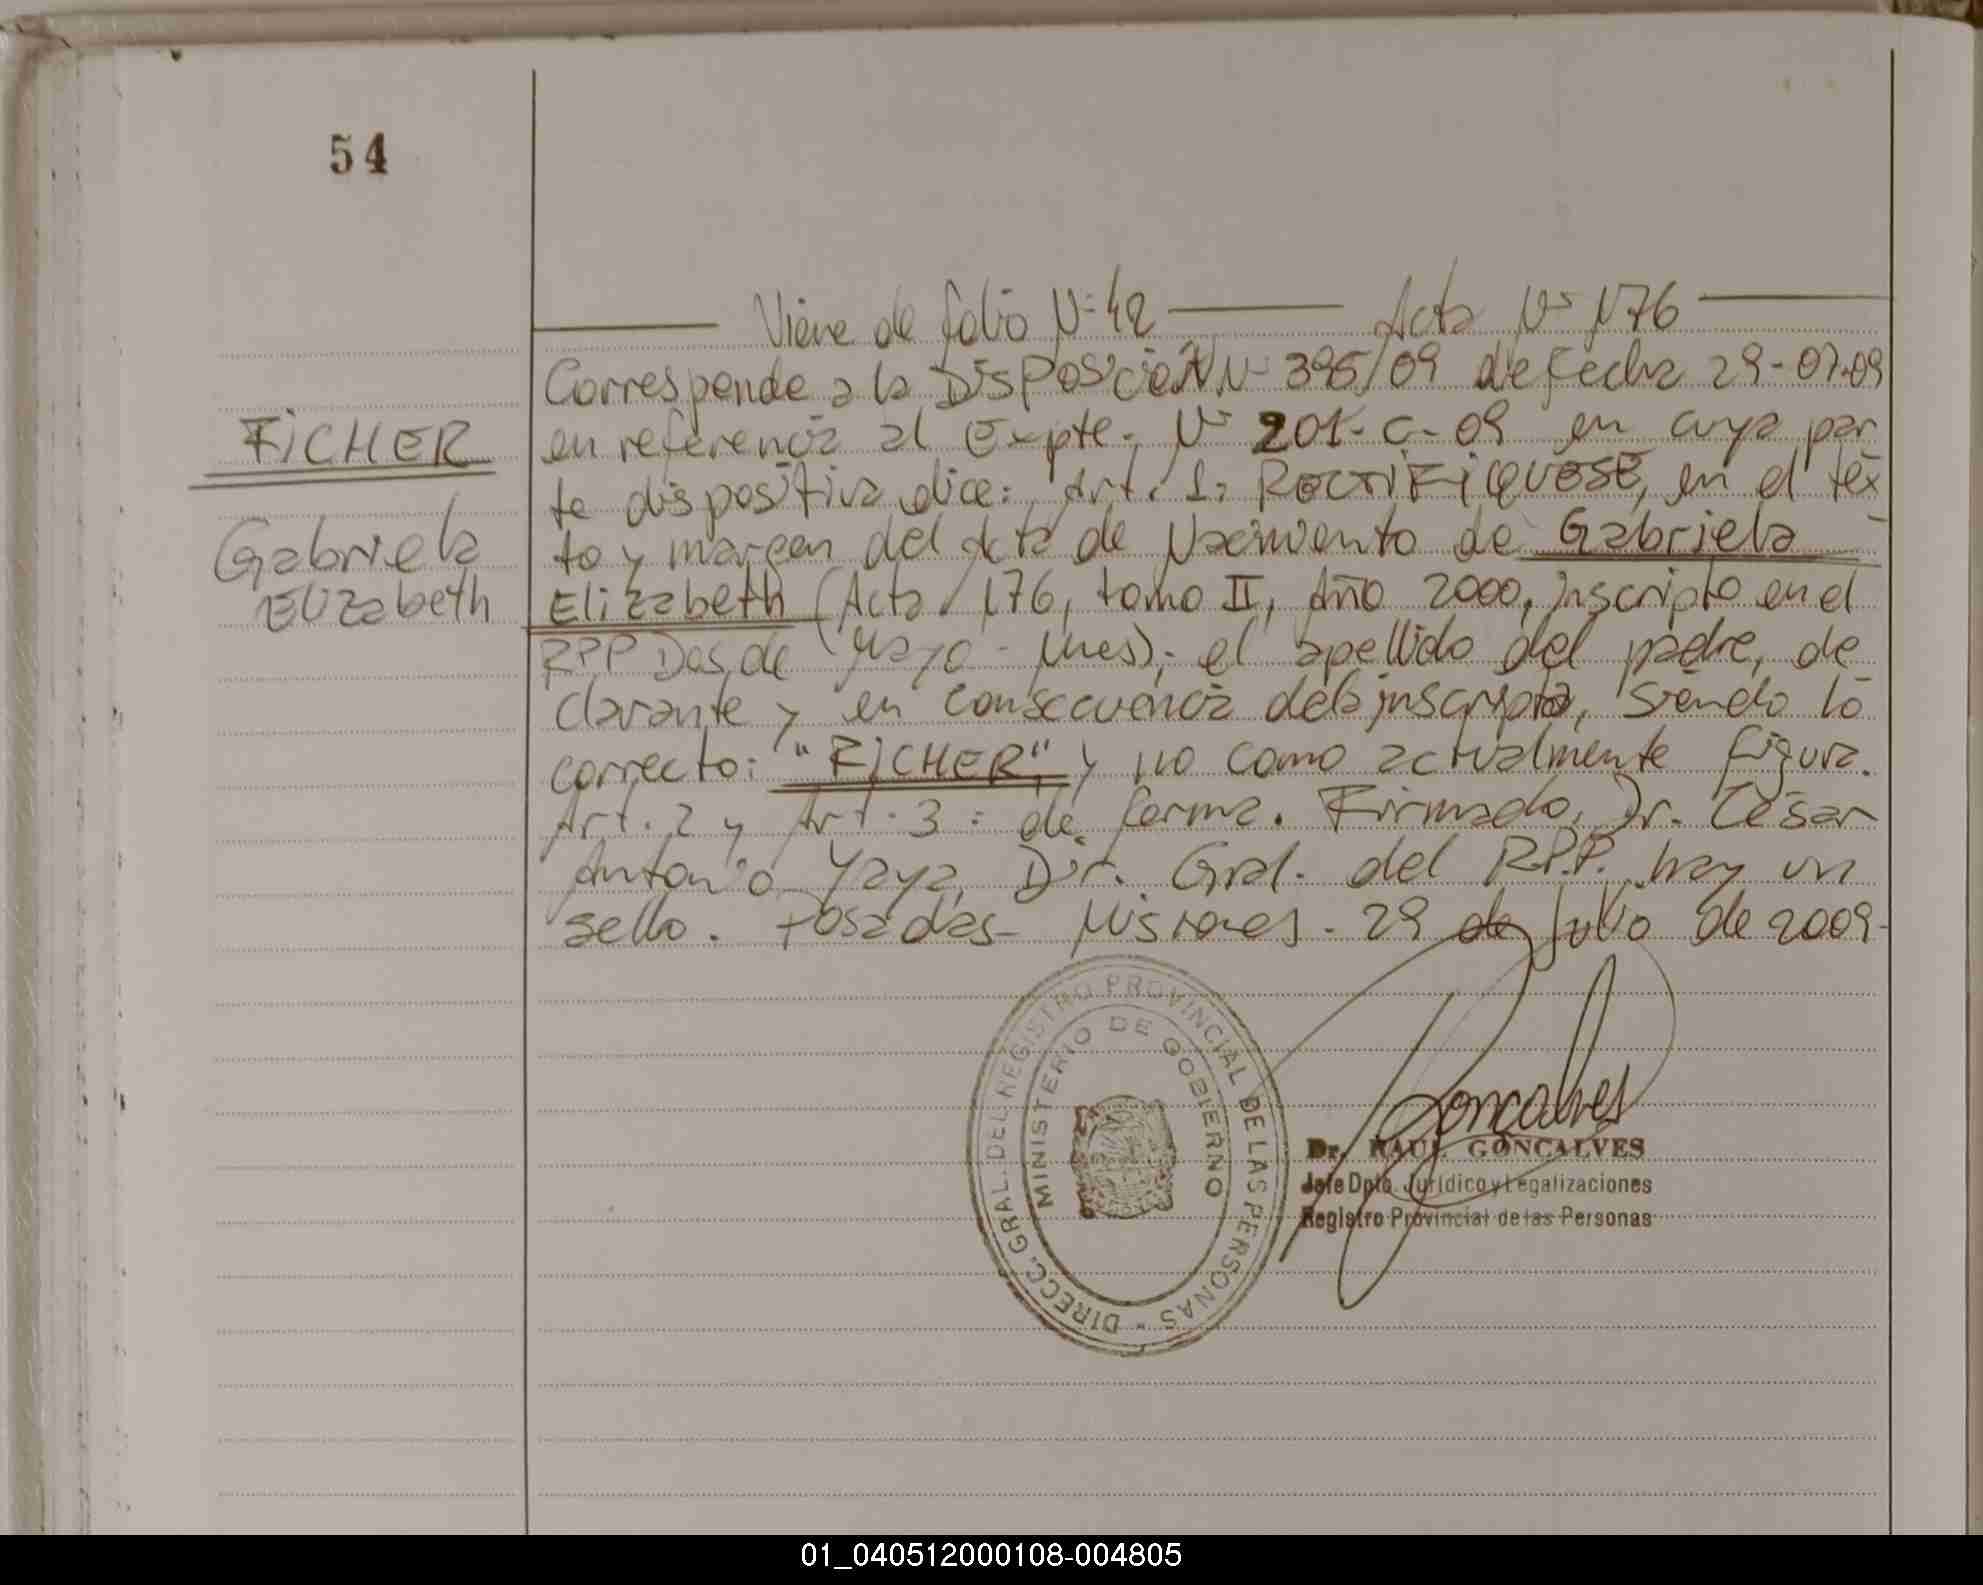 54
Viene de folio Nº 42 Acta Nº 176
Corresponde a la DISPOSICIÓN Nº 395/09 de fecha 29-07-09
FICHER
en referencia al Expte. Nº 201-C-09 en cuya par
te dispositiva dice: Art. 1: RECTIFIQUESE, en el tex
Gabriela
to y margen del Acta de Nacimiento de Gabriela
Elizabeth
Elizabeth (Acta 176, tomo II, Año 2000, inscripto en el
RPP Dos de Mayo - Mnes); el apellido del padre, de
clarante y en consecuencia de la inscripta, siendo lo
correcto: "FICHER", y no como actualmente figura.
Art. 2 y Art. 3: de forma. Firmado, Dr. César
Antonio Yaya, Dir. Gral. del R.P.P. hay un
sello. Posadas - Misiones. 29 de Julio de 2009-
DIRECC. GRAL. DEL REGISTRO PROVINCIAL DE LAS PERSONAS
MINISTERIO DE GOBIERNO
Goncalves
Dr. RAUL GONCALVES
Jefe Dpto. Jurídico y Legalizaciones
Registro Provincial de las Personas
01_040512000108-004805